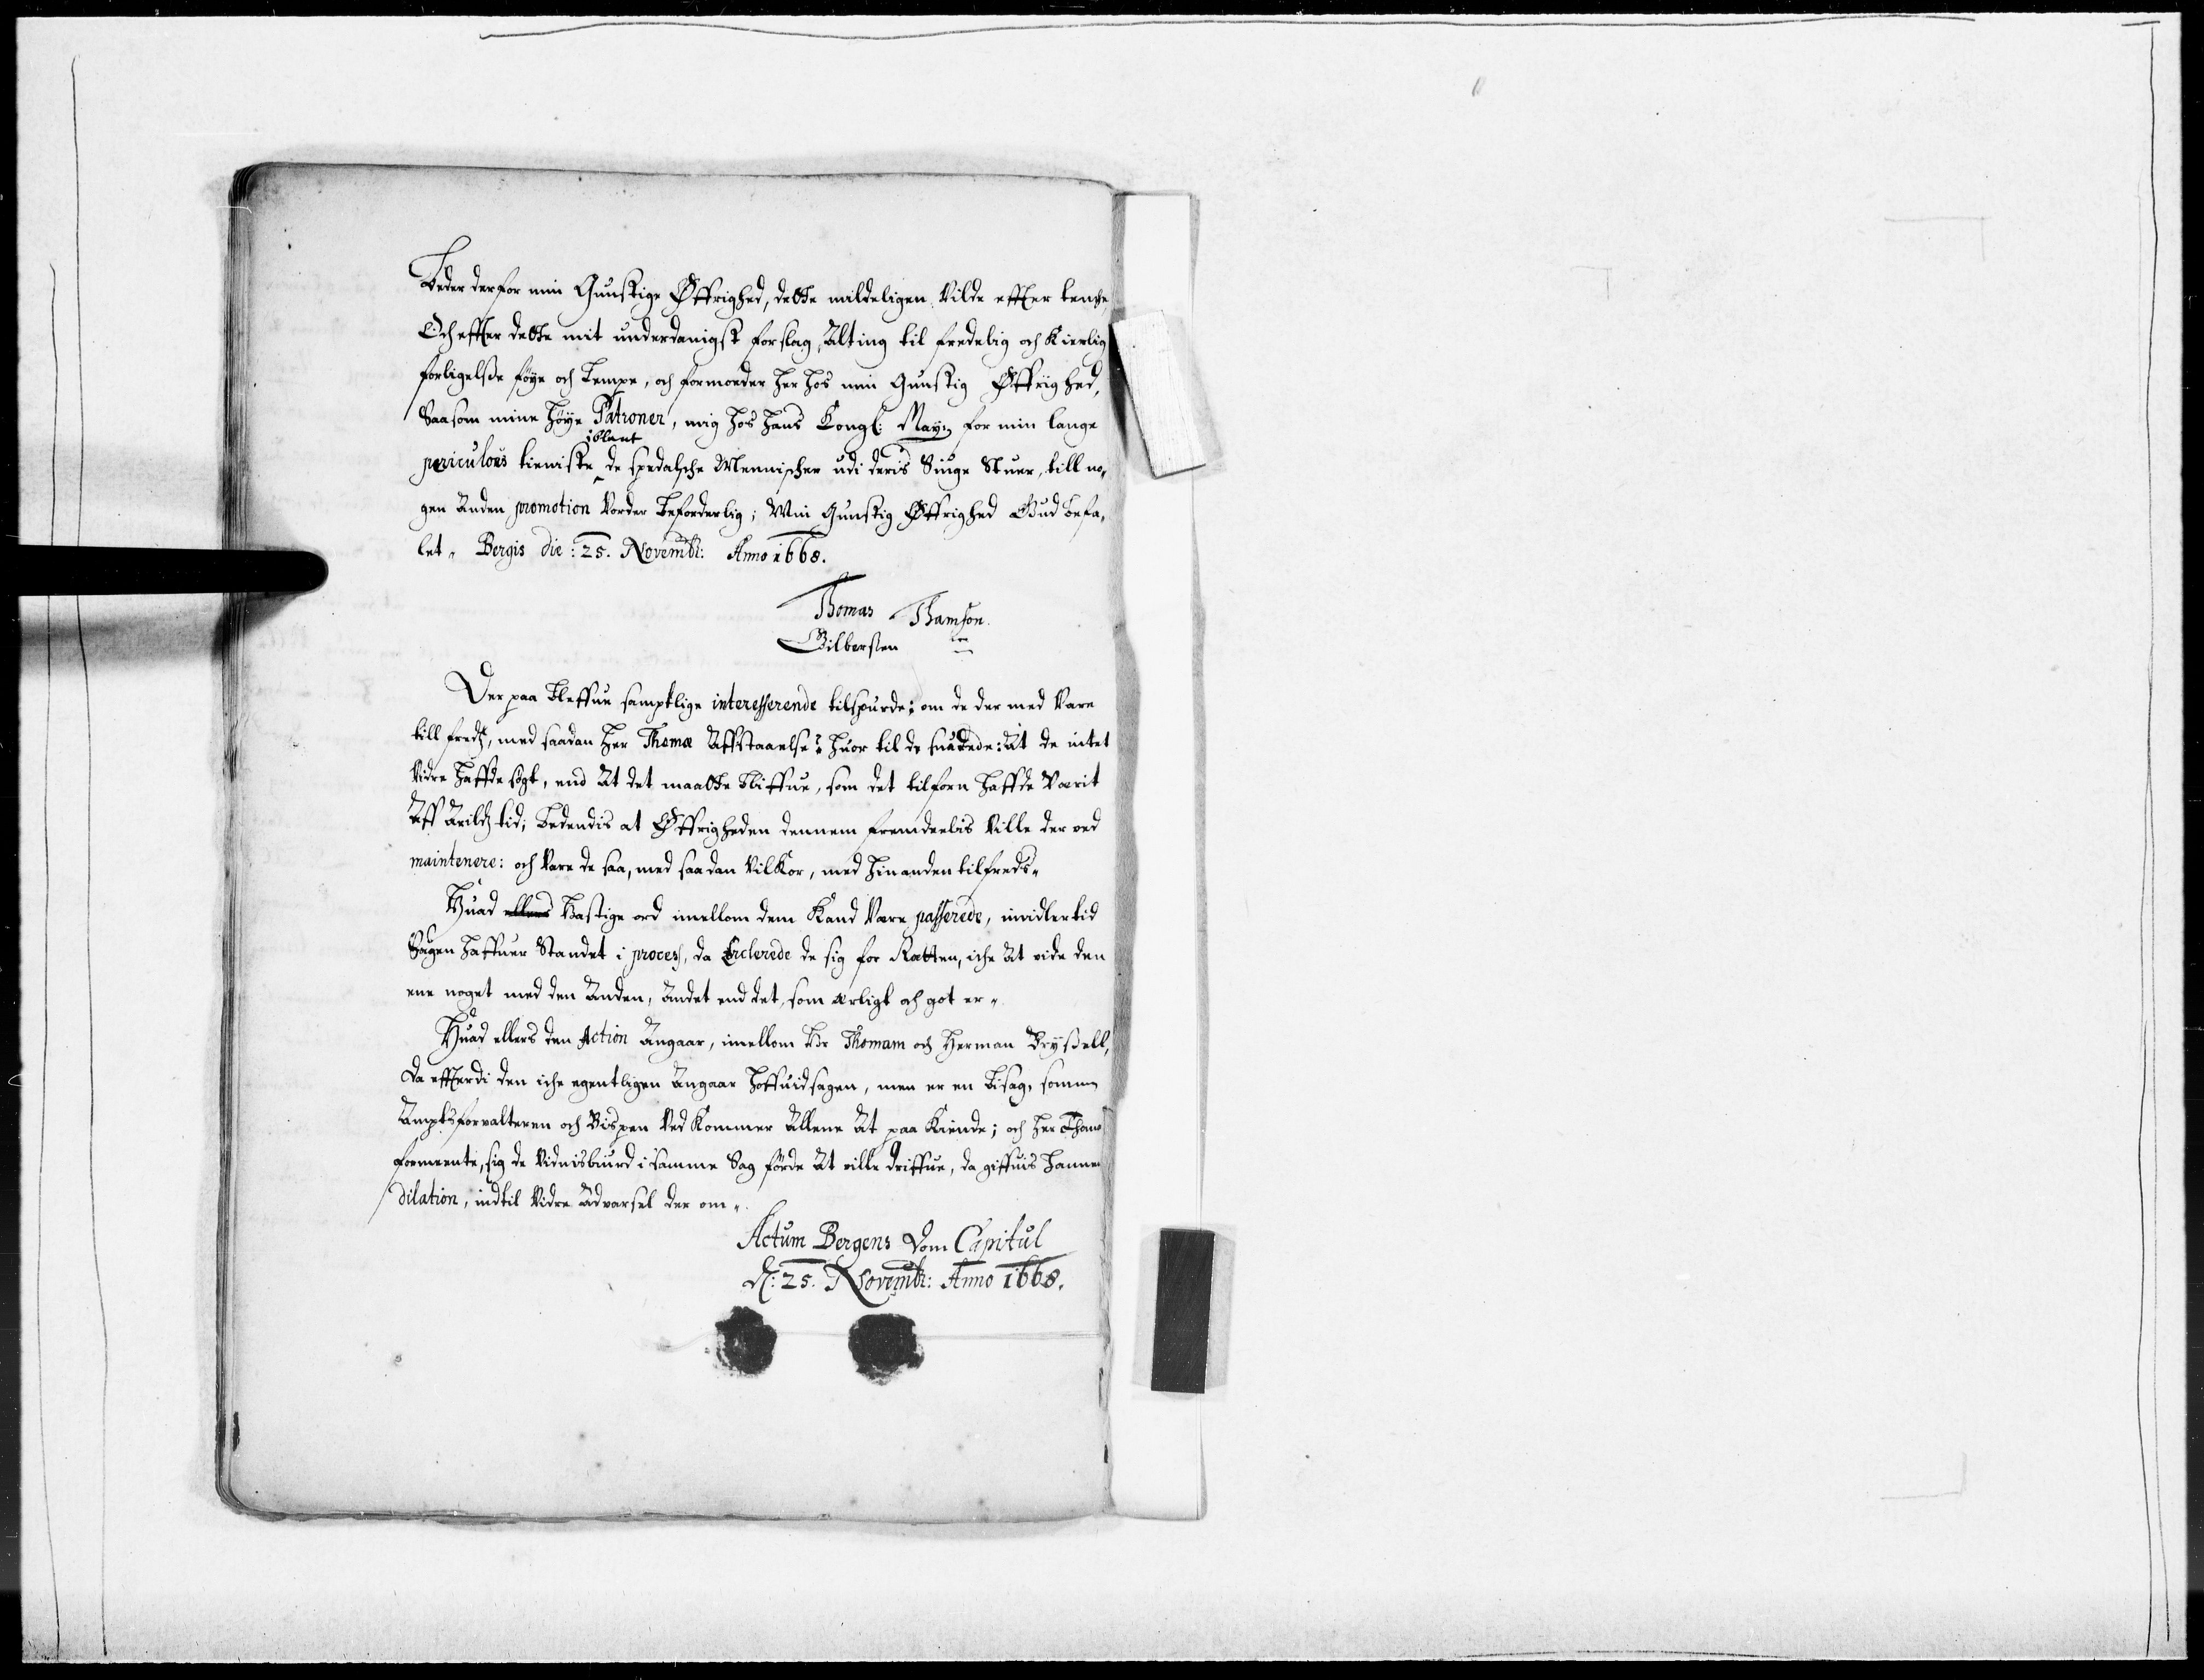 Beder derfor min Gunstige Øffrighed, dette mildeligen Vilde effter tenche,
Och effter dette mit underdanigst forslag, Alting til fredelig och Kierlig
forligelsse føye och Tempe, och formoeder her hos min Gunstig Øffrighed,
Saasom mine høye Patroner, mig hos hans Kongl: May: for min lange
iblant
periculous tieniste de spedalsche Mennischer udi deris Siuge Stuer, till no¬
gen Anden promotion Vorder Beforderlig; Min Gunstig Øffrighed Gud Befa¬
let. Bergis die: 25. Novembr: Anno 1668.
Thomas Thamson
Gilbertsen
Der paa Bleffue samptlige interesserende tilspurde: om de der med Vare
till fredz, med saadan her Thomæ Affstaaelse? huor til de suarede: At de intet
Vidre haffde søgt, end At det maatte Bliffue, som det tilforn haffde Værit
Aff Arildz tid; Bedendis at Øffrigheden dennem fremdeelis Ville der ved
maintenere: och Vare de saa, med saadan Vilkor, med hinanden tilfreds.
Huad ellers Hastige ord imellom dem Kand Være passerede, imidlertid
Sagen haffuer Standet i process, da Erclerede de sig for Rætten, iche At vide den
ene noget med den Anden, Andet end det, som ærligt och got er.
Huad ellers den Action Angaar, imellom Hr Thomam och Herman Bryssell,
da effterdi den iche egentligen Angaar hoffuidsagen, men er en Bisag, somm
Amptsforvalteren och Bispen Ved Kommer Allene At paa Kiende; och her Thom
formeente, sig de Vidnisbiurd i samme Sag førde At ville driffue, da giffuis hannem
dilation, indtil Vidre Advarsel der om.
Actum Bergens Dom Capitul
d: 25. Novembr: Anno 1668.